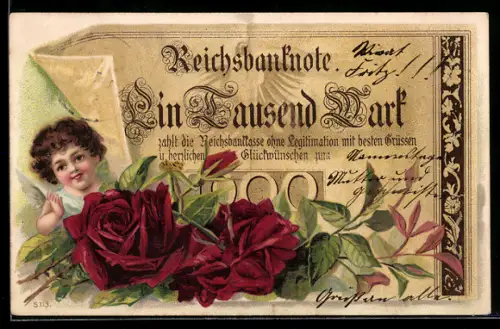 Reichsbanknote.
Ein Tausend Mark
zahlt die Reichsbankkasse ohne Legitimation mit besten Grüssen
u. herzlichen Glückwünschen zum
1000
Vivat
Fritz!!!
Namenstage
Mutter und
Grüßen alle.
S.113.